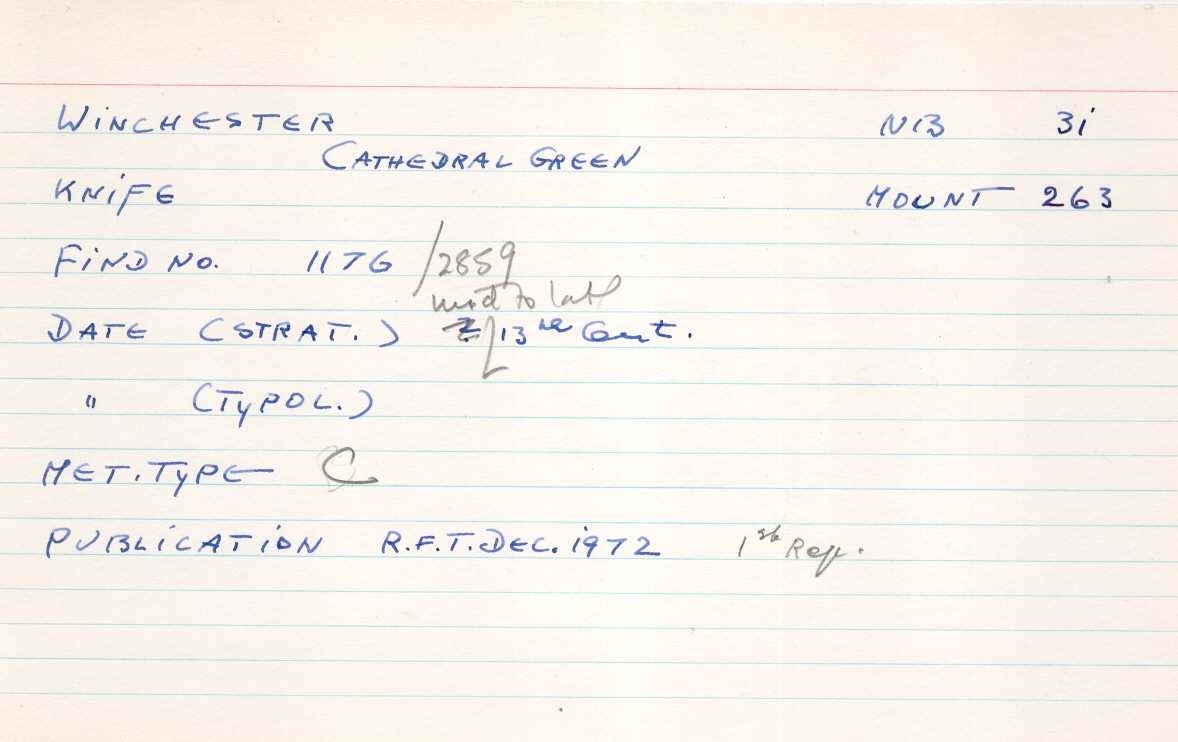 WiNCHESTER NB 3i
CATHEDRAL GREEN
KNiFE MOUNT 263
FiND No. 1176 /2859
mid to late
DATE (STRAT.) 13th Cent.
" (TYPOL.)
MET. TYPE C
PUBLiCATiON R.F.T. DEC. 1972 1st Rep.